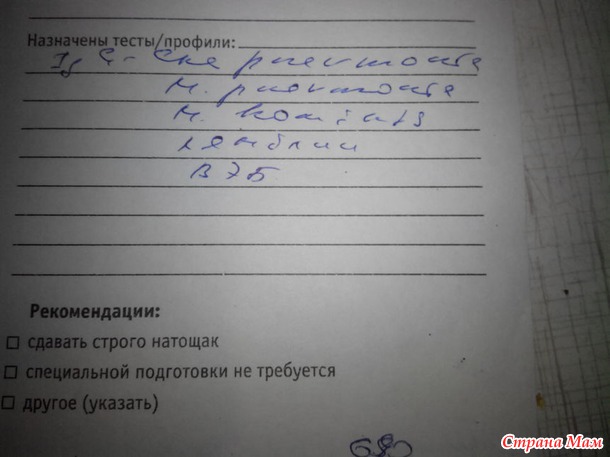 Назначены тесты/профили:
Ig G - Chl pneumonia
M. pneumonia
M. hominis
лямблии
ВЭБ
Рекомендации:
сдавать строго натощак
специальной подготовки не требуется
другое (указать)
Страна Мам